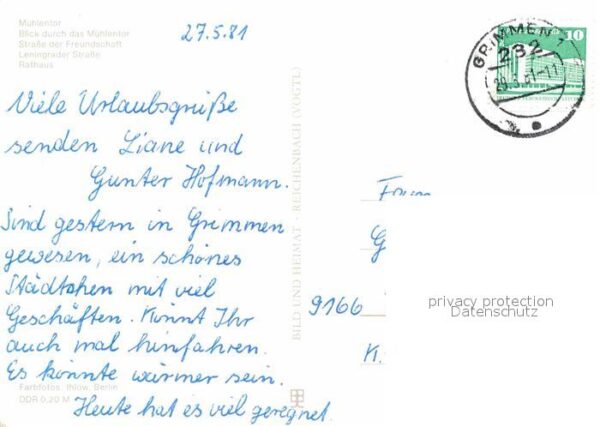 Mühlentor
Blick durch das Mühlentor
Straße der Freundschaft
Leningrader Straße
Rathaus
27.5.81
Viele Urlaubsgrüße
senden Liane und
Gunter Hofmann.
Sind gestern in Grimmen
gewesen, ein schönes
Städtchen mit viel
Geschäften. Könnt Ihr
auch mal hinfahren.
Es könnte wärmer sein.
Heute hat es viel geregnet.
Farbfotos: Ihlow, Berlin
DDR 0,20 M
BILD UND HEIMAT · REICHENBACH (VOGTL)
GRIMMEN 1
232
10
G
9166
K.
privacy protection
Datenschutz